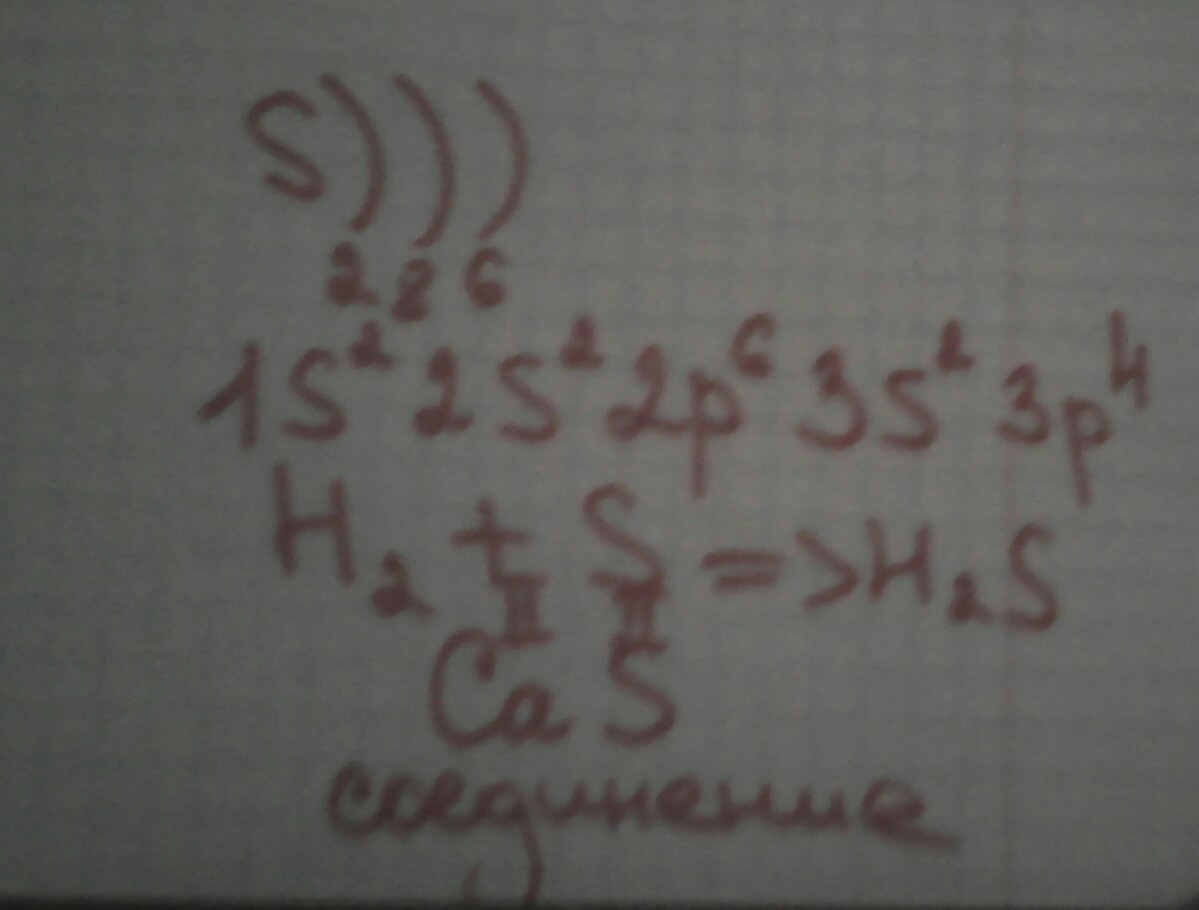 S)))
2 8 6
1S² 2S² 2p⁶ 3S² 3p⁴
H₂ + S => H₂S
II II
Ca S
соединение